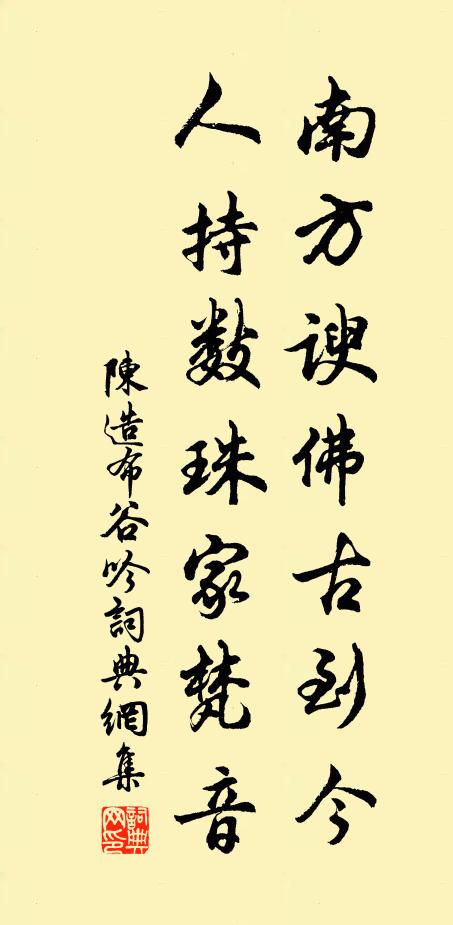 南方谀佛古到今
人持数珠家梵音
陳造布谷吟詞典網集
詞典网印